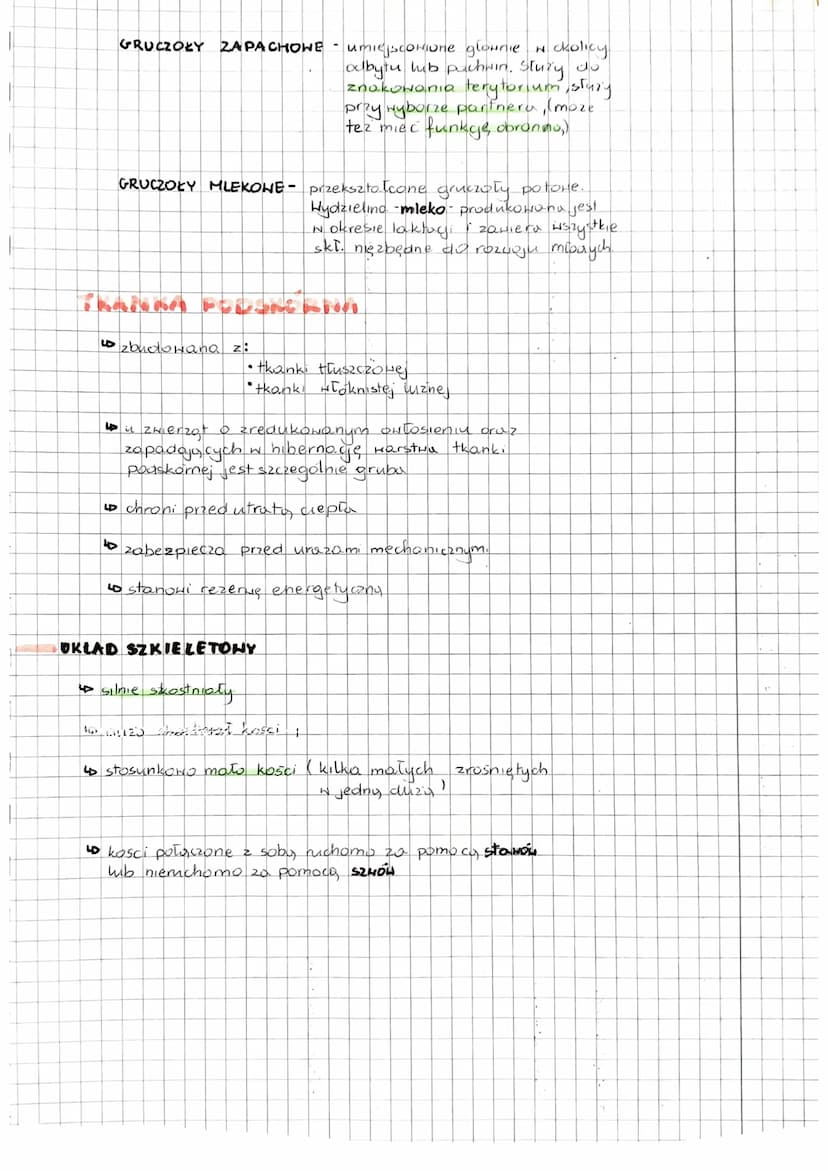 GRUCZOŁY ZAPACHOWE - umiejscowione głownie w okolicy
odbytu lub pachwin. Służy do
znakowania terytorium, służy
przy wyborze partnera, (może
też mieć funkcję obronną)
GRUCZOŁY MLEKOWE - przekształcone gruczoły potowe.
Wydzielina - mleko - produkowana jest
w okresie laktacji i zawiera wszystkie
skł. niezbędne do rozwoju młodych.
TKANKA PODSKÓRNA
↳ zbudowana z:
• tkanki tłuszczowej
• tkanki włóknistej luźnej
↳ u zwierząt o zredukowanym owłosieniu oraz
zapadających w hibernację warstwa tkanki
podskórnej jest szczególnie gruba
↳ chroni przed utratą ciepła
↳ zabezpiecza przed urazami mechanicznymi
↳ stanowi rezerwę energetyczną
UKŁAD SZKIELETOWY
↳ silnie skostniały
↳ kości
↳ stosunkowo mało kości (kilka małych zrośniętych
w jedną dużą)
↳ kości połączone z sobą ruchomo za pomocą stawów
lub nieruchomo za pomocą szwów